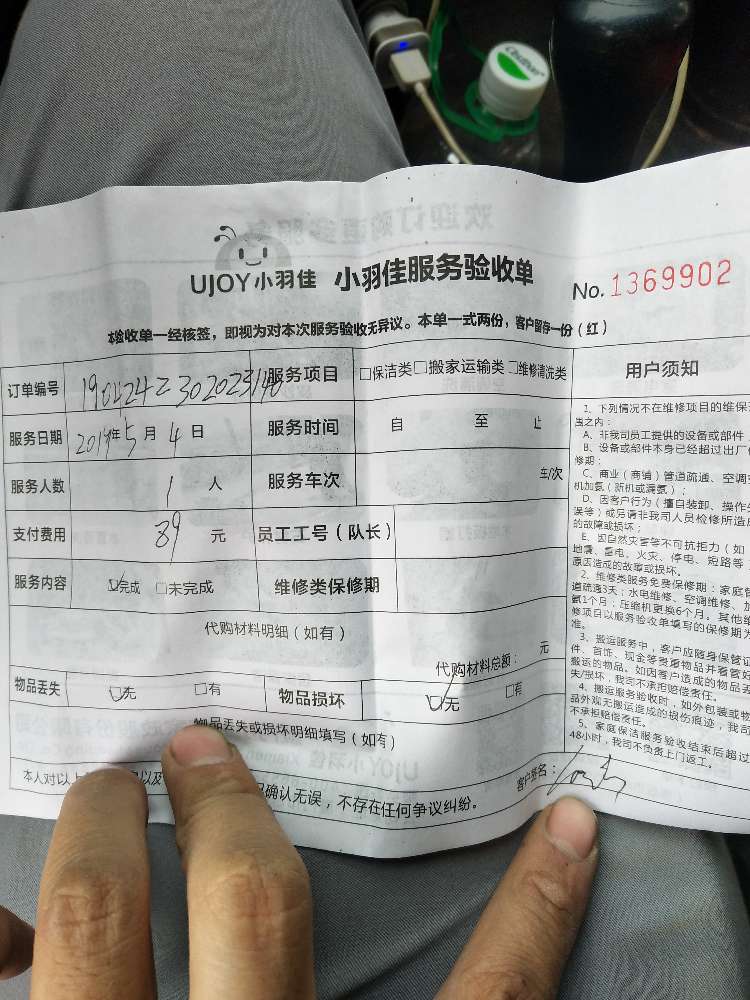 UJOY小羽佳 小羽佳服务验收单 No. 1369902
本验收单一经核签，即视为对本次服务验收无异议。本单一式两份，客户留存一份（红）
订单编号
服务项目 □保洁类 □搬家运输类 □维修清洗类
服务日期 2019年5月4日
服务时间 自 至 止
服务人数 1 人
服务车次 车/次
支付费用 89 元
员工工号（队长）
服务内容 ☑完成 □未完成
维修类保修期
代购材料明细（如有）
代购材料总额： 元
物品丢失 ☑无 □有
物品损坏 ☑无 □有
物品丢失或损坏明细填写（如有）
本人对以上
以及
确认无误，不存在任何争议纠纷。
客户签名：
用户须知
1、下列情况不在维修项目的维保范
围之内：
A、非我司员工提供的设备或部件
B、设备或部件本身已经超过出厂
修期；
C、商业（商铺）管道疏通、空调
机加氟（新机或漏氟）；
D、因客户行为（擅自装卸、操作
误等）或另请非我司人员检修所造
的故障或损坏；
E、因自然灾害等不可抗拒力（如
地震、雷电、火灾、停电、短路等
原因造成的故障或损坏。
2、维修类服务免费保修期：家庭管
道疏通3天；水电维修、空调维修、加
氟1个月；压缩机更换6个月。其他维
修项目以服务验收单填写的保修期为
准。
3、搬运服务中，客户应随身保管证
件、首饰、现金等贵重物品并看管好
搬运的物品。如因客户造成的物品丢
失/损坏，我司不承担赔偿责任。
4、搬运服务验收时，如外包装或物
品外观无搬运造成的损伤痕迹，我司
不承担赔偿责任。
5、家庭保洁服务验收结束后超过
48小时，我司不负责上门返工。